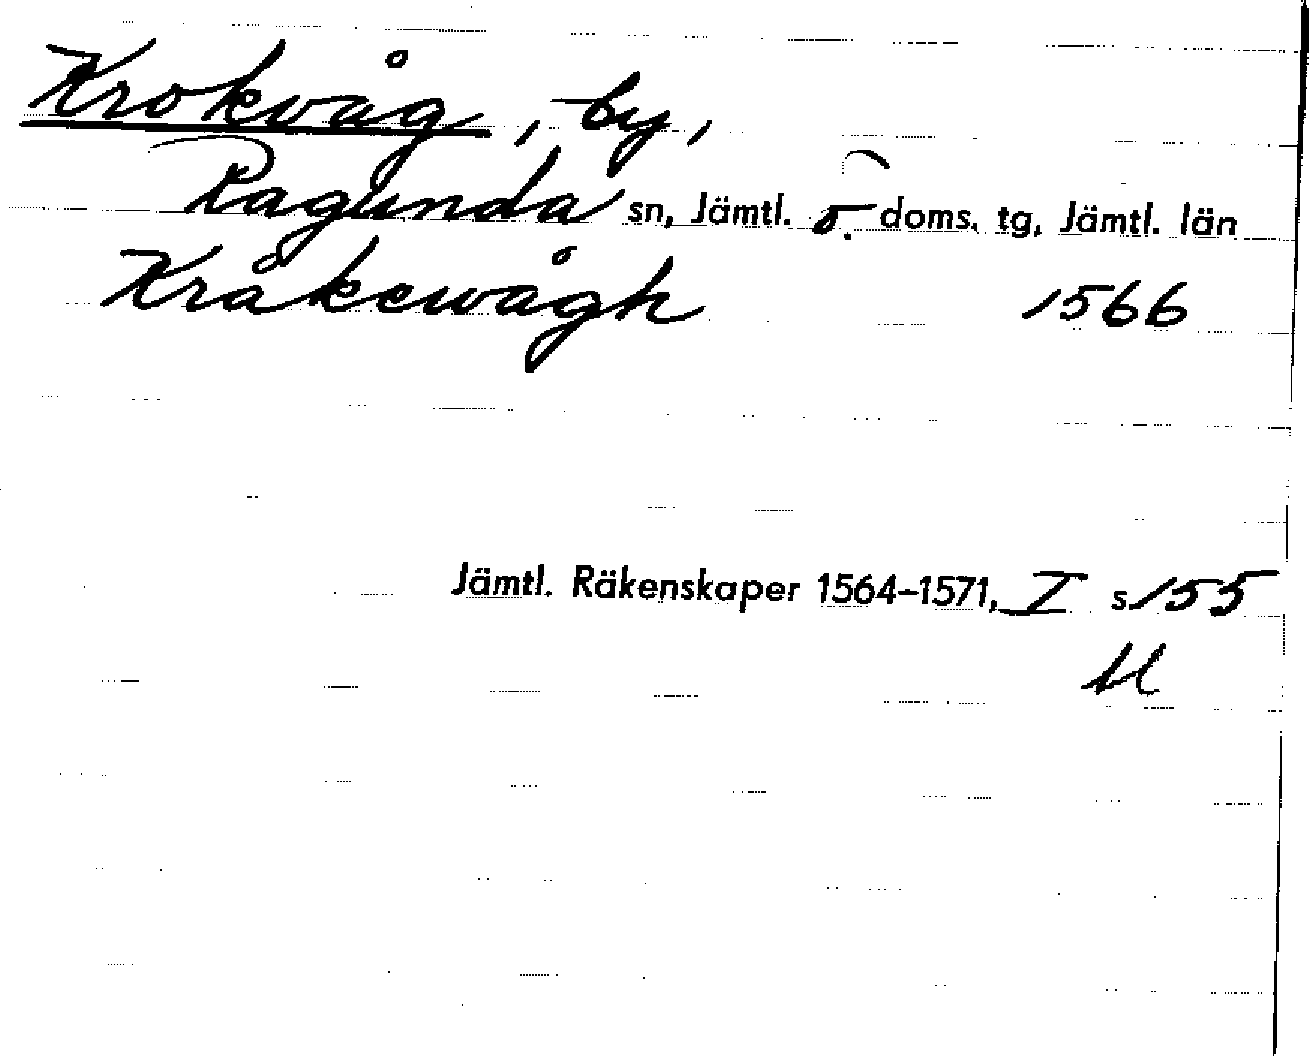 Krokvåg, by,
Ragunda sn, Jämtl. ö. doms. tg, Jämtl. län
Kråkewågh 1566
Jämtl. Räkenskaper 1564–1571, I s 155